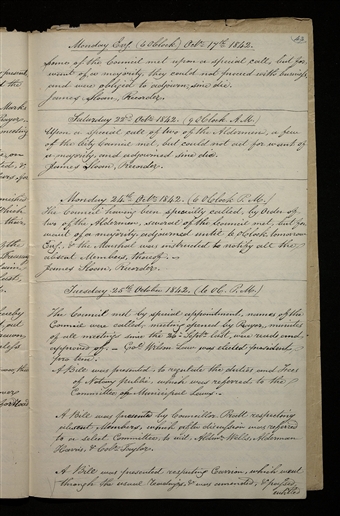 43
Monday Evg. (6 O'Clock) Octr. 17th 1842.
Some of the Council met upon a special call, but for
want of a majority, they could not proceed with business,
and were obliged to adjourn, sine die.
James Sloan, Recorder.
Saturday 22d. Octr. 1842. (9 O'Clock A.M.)
Upon a special call of two of the Aldermen, a few
of the City Council met, but could not act for want of
a majority, and adjourned sine die.
James Sloan, Recorder.
Monday 24th Octr. 1842. (6 O'Clock P.M.)
The Council having been specially called, by Order of
two of the Aldermen, several of the Council met, but for
want of a majority, adjourned until 6 O'Clock tomorrow
Evg., & the Marshal was instructed to notify all the
absent Members, thereof.
James Sloan, Recorder.
Tuesday 25th October 1842. (6 O'C. P.M.)
The Council met by special appointment, names of the
Council were called, meeting opened by Prayer, minutes
of all meetings since the 26th Septr. last, were read and
approved of. Col. Wilson Law was elected president
pro. tem.
A Bill was presented to regulate the duties and Fees
of Notary public, which was referred to the
Committee of Municipal Laws.
A Bill was presented by Councillor Pratt respecting
absent Members, which after discussion was referred
to a select Committee, to wit. Aldm. Wells, Alderman
Harris, & Col. Taylor.
A Bill was presented respecting Carrion, which went
through the usual Readings, & was amended, & passed,
entitled